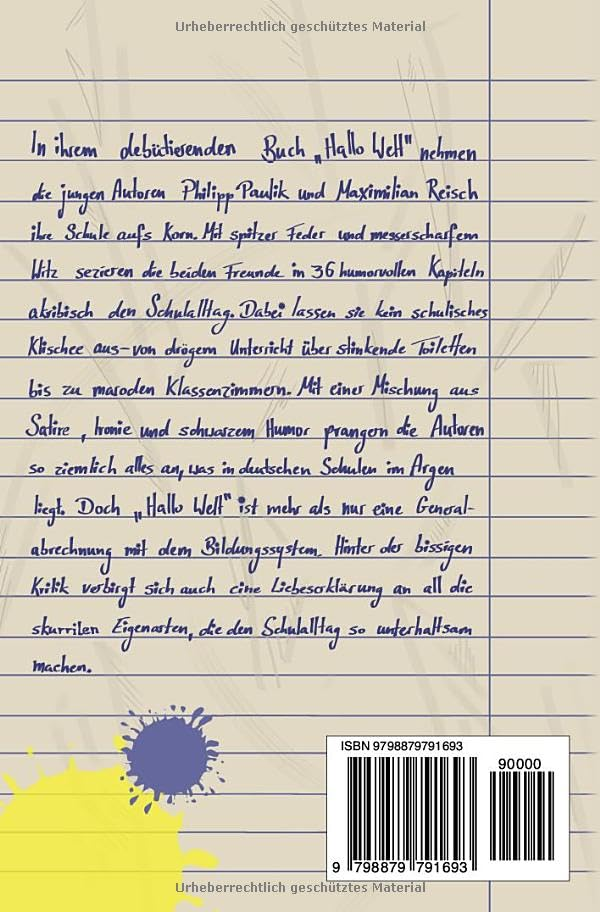 Urheberrechtlich geschütztes Material
In ihrem debütierenden Buch „Hallo Welt" nehmen
die jungen Autoren Philipp Paulik und Maximilian Reisch
ihre Schule aufs Korn. Mit spitzer Feder und messerscharfem
Witz sezieren die beiden Freunde in 36 humorvollen Kapiteln
akribisch den Schulalltag. Dabei lassen sie kein schulisches
Klischee aus-von drögem Unterricht über stinkende Toiletten
bis zu maroden Klassenzimmern. Mit einer Mischung aus
Satire, Ironie und schwarzem Humor prangern die Autoren
so ziemlich alles an, was in deutschen Schulen im Argen
liegt. Doch „Hallo Welt" ist mehr als nur eine General-
abrechnung mit dem Bildungssystem. Hinter der bissigen
Kritik verbirgt sich auch eine Liebeserklärung an all die
skurrilen Eigenarten, die den Schulalltag so unterhaltsam
machen.
ISBN 9798879791693
90000
9 798879 791693
Urheberrechtlich geschütztes Material